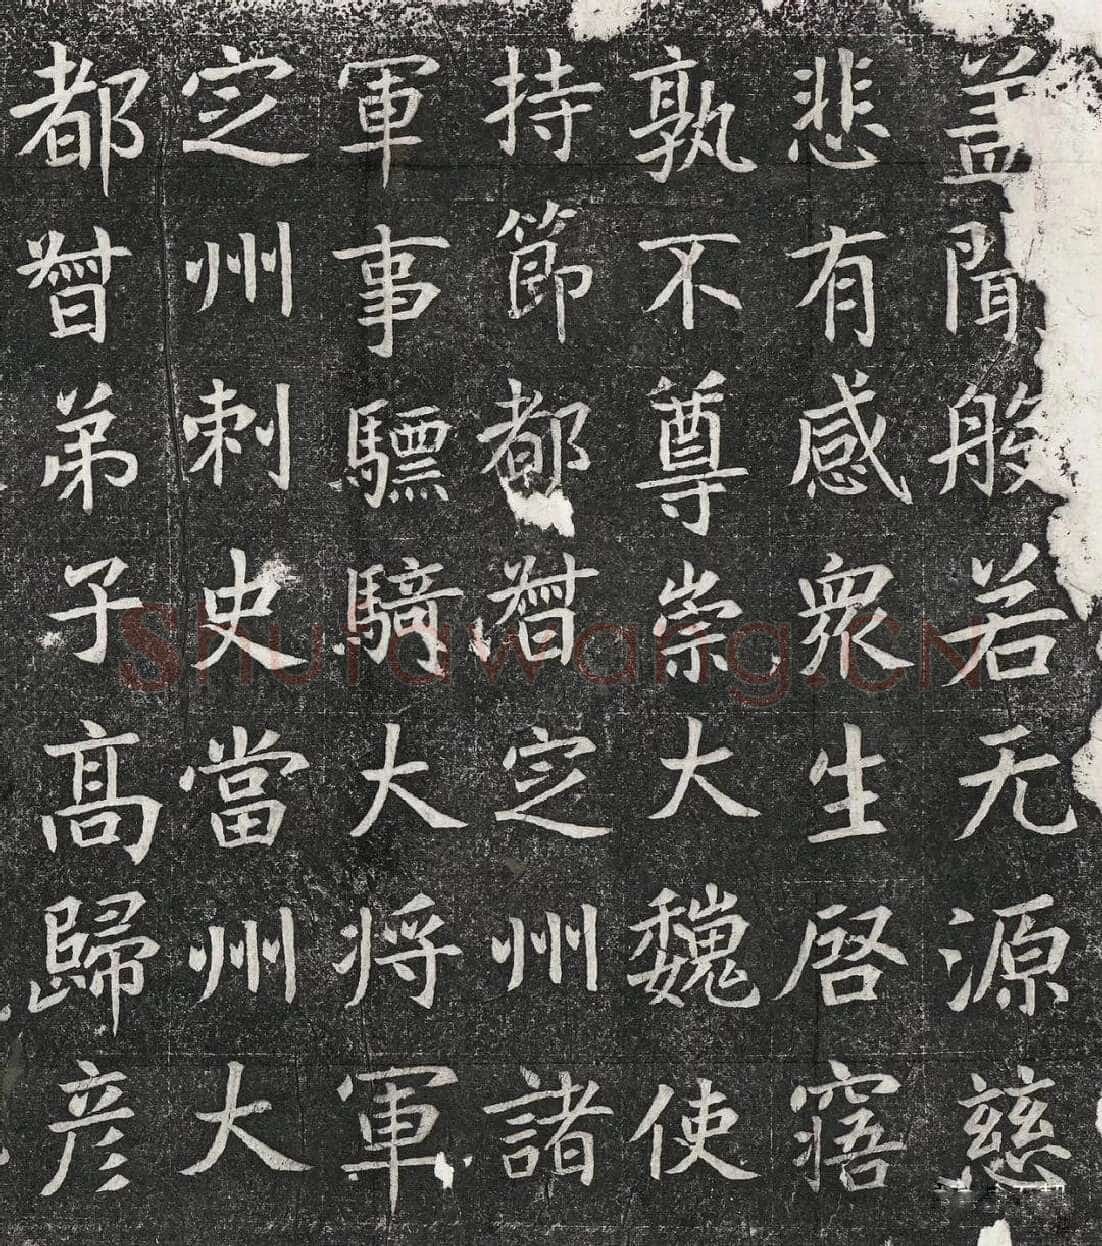 盖聞般若无源慈
悲有感衆生啓寤
孰不尊崇大魏使
持節都督定州諸
軍事驃騎大将軍
定州刺史當州大
都督弟子高歸彦
Shufawang.CN